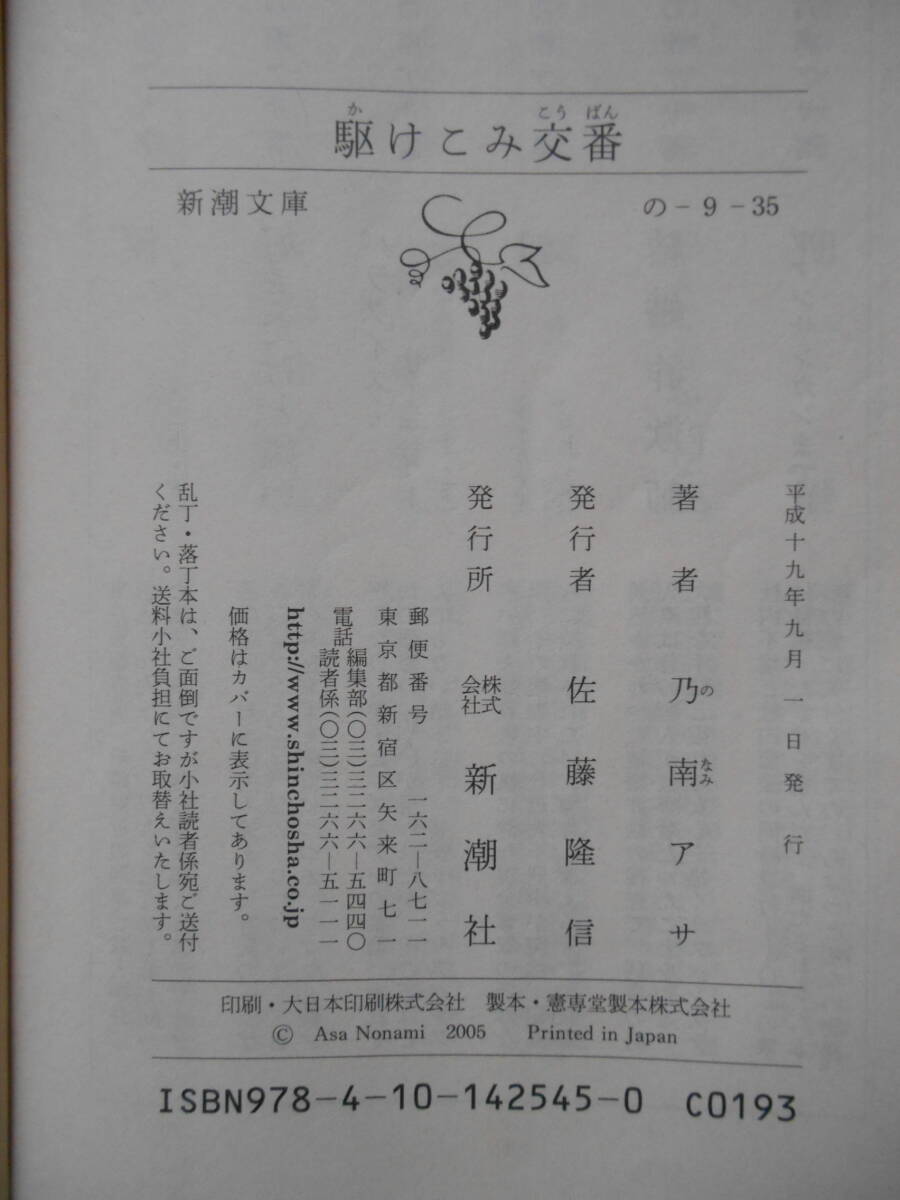 駆けこみ交番
か こう ばん
新潮文庫 の-9-35
平成十九年九月一日発行
著者 乃南アサ
の なみ
発行者 佐藤隆信
発行所 株式会社 新潮社
郵便番号 一六二—八七一一
東京都新宿区矢来町七一
電話 編集部(〇三)三二六六—五四四〇
読者係(〇三)三二六六—五一一一
http://www.shinchosha.co.jp
価格はカバーに表示してあります。
乱丁・落丁本は、ご面倒ですが小社読者係宛ご送付
ください。送料小社負担にてお取替えいたします。
印刷・大日本印刷株式会社 製本・憲専堂製本株式会社
© Asa Nonami 2005 Printed in Japan
ISBN978-4-10-142545-0 C0193